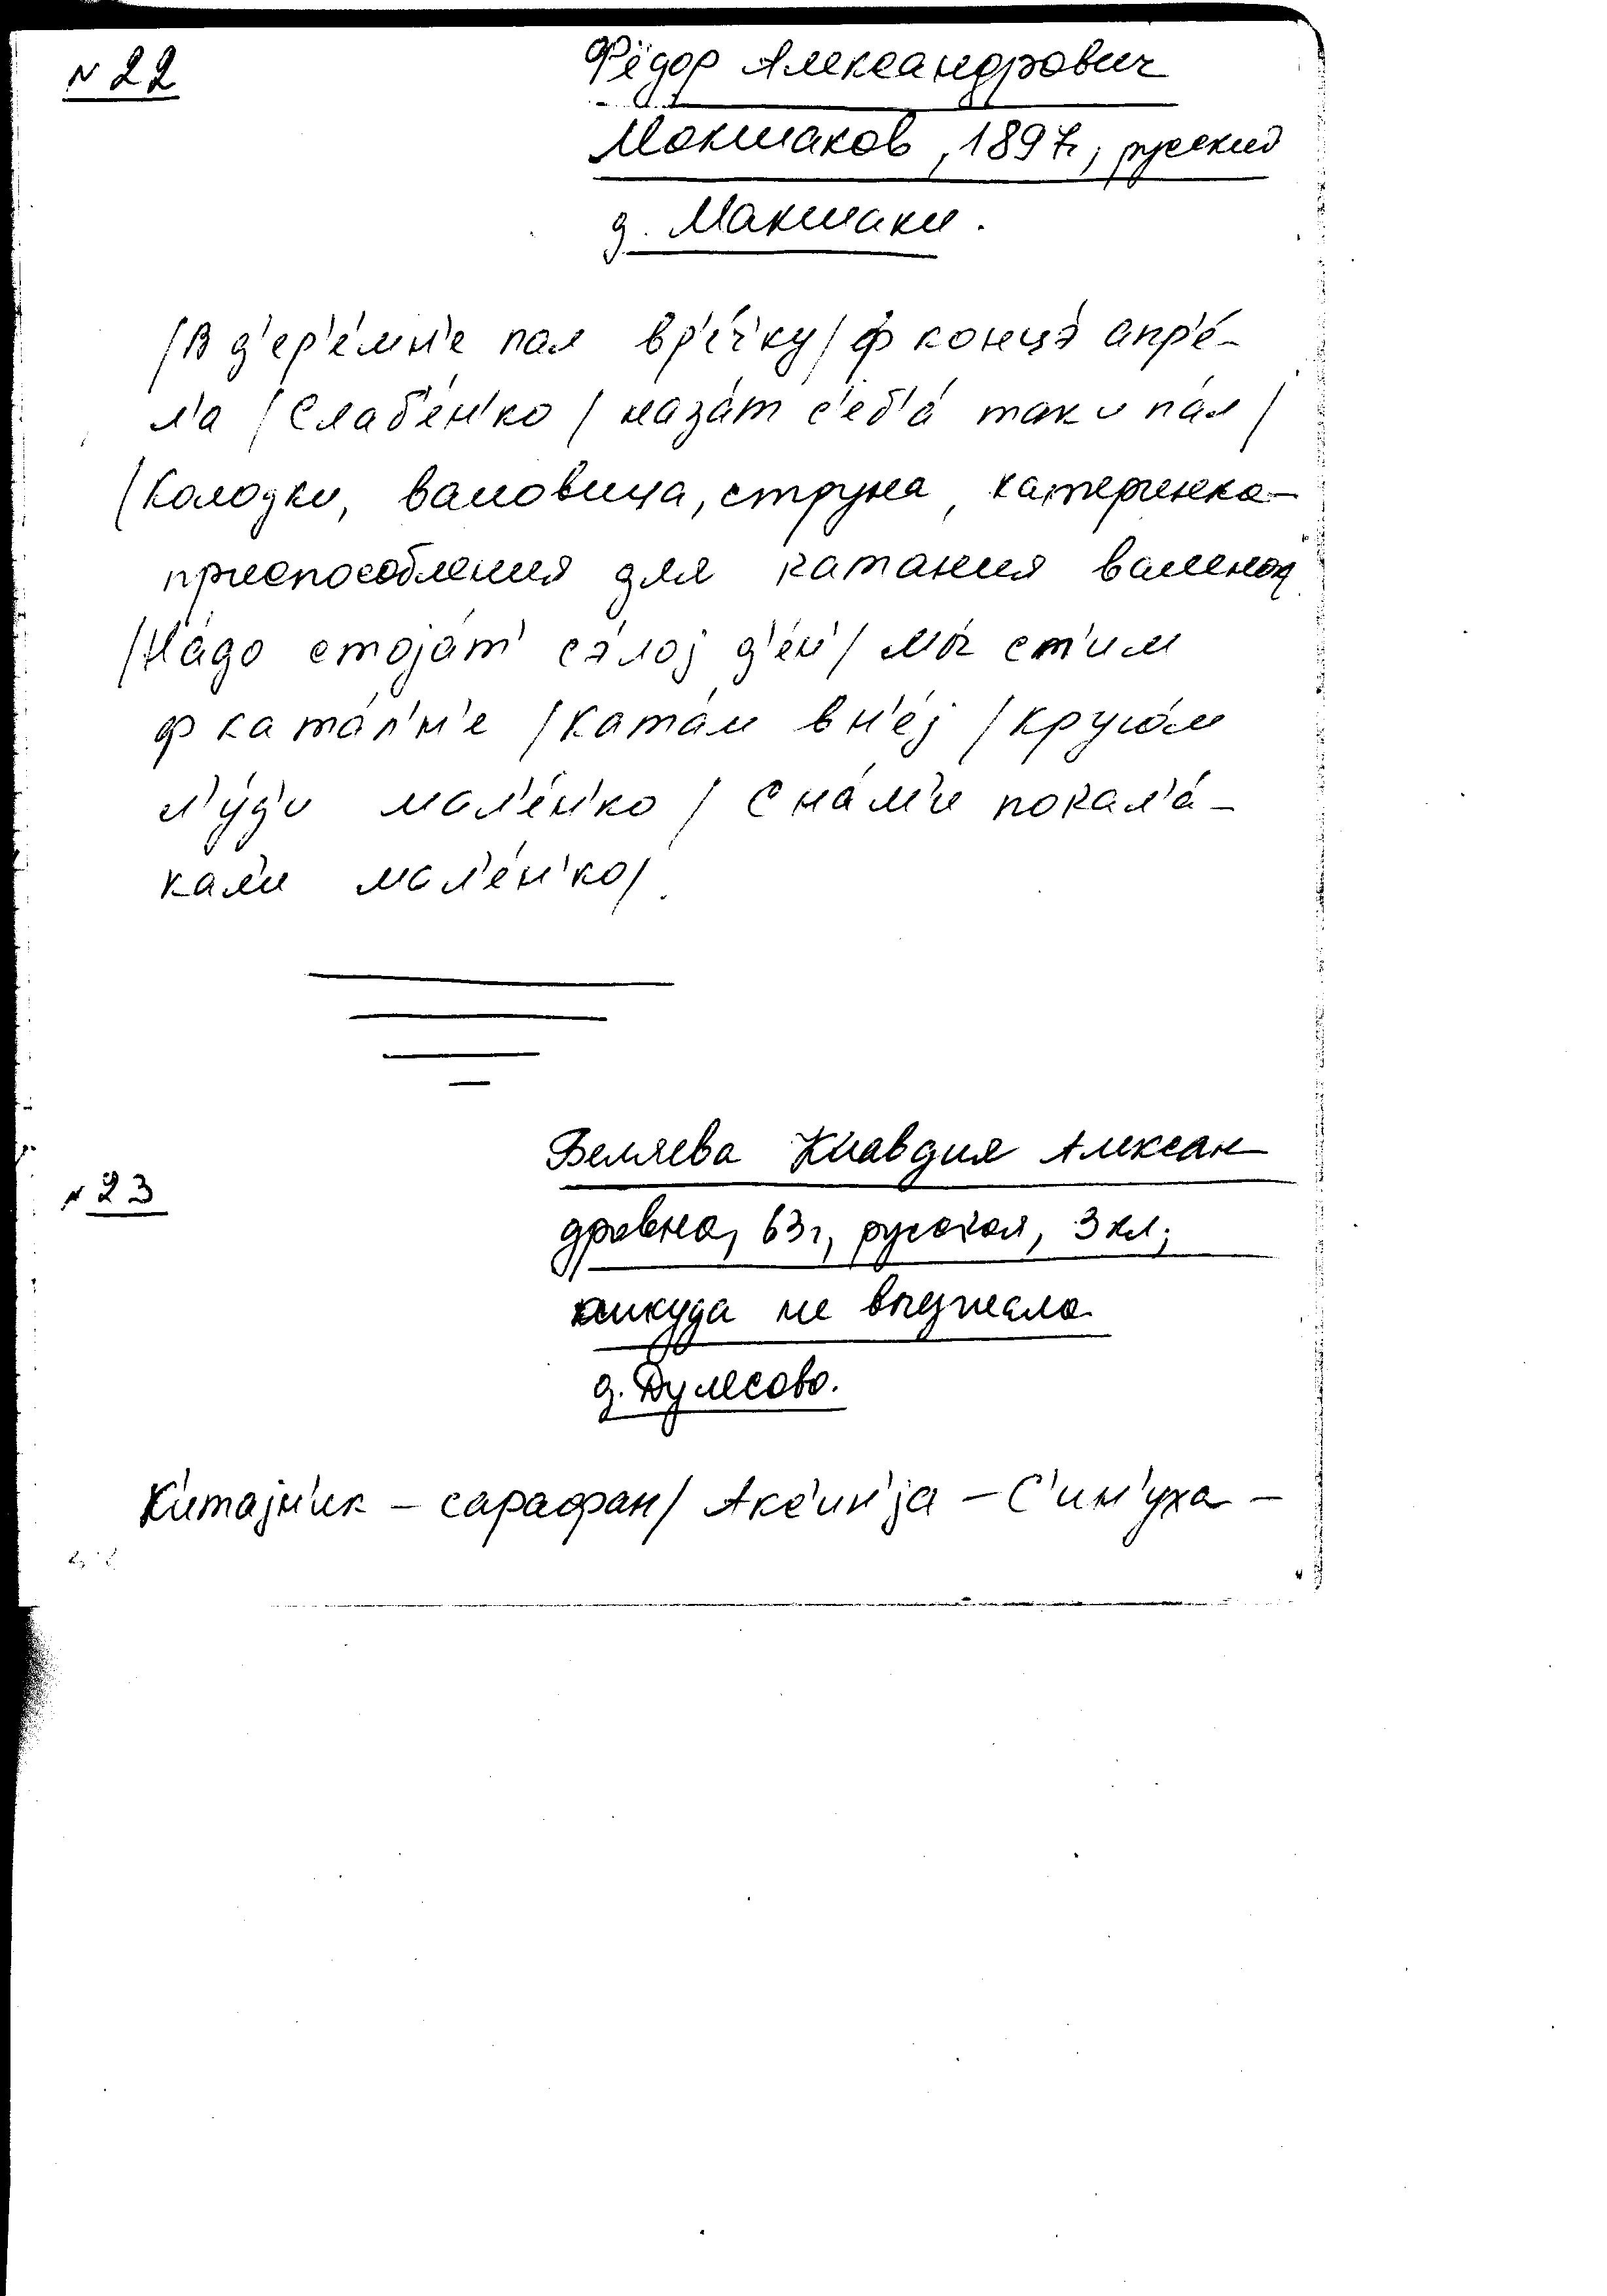 №22
Фёдор Александрович
Мокшаков, 1897г, русский
д. Макшаки.
/В д'ер'е́мн'е пал вр'е́ч'ку/ ф концэ́ апр'е́-
л'а /Слаб'е́н'ко / наза́т с'еб'а́ так и па́л/
/Колодки, валовица, струна, катеринка-
приспособления для катания валенок
/На́до стоја́т' сэлој д'е́н'/ мы́ ст'им
ф ката́л'н'е /Ката́м в н'е́ј /круго́м
л'у́д'и мал'е́н'ко / С на́м'и покал'а́-
кал'и мал'е́н'ко/.
№23
Беляева Клавдия Алексан-
дровна, 63г, русская, 3кл;
никуда не выезжала
д. Дулесово.
К'итајн'ик – сарафан/ Акс'ин'ја – С'ин'уха –